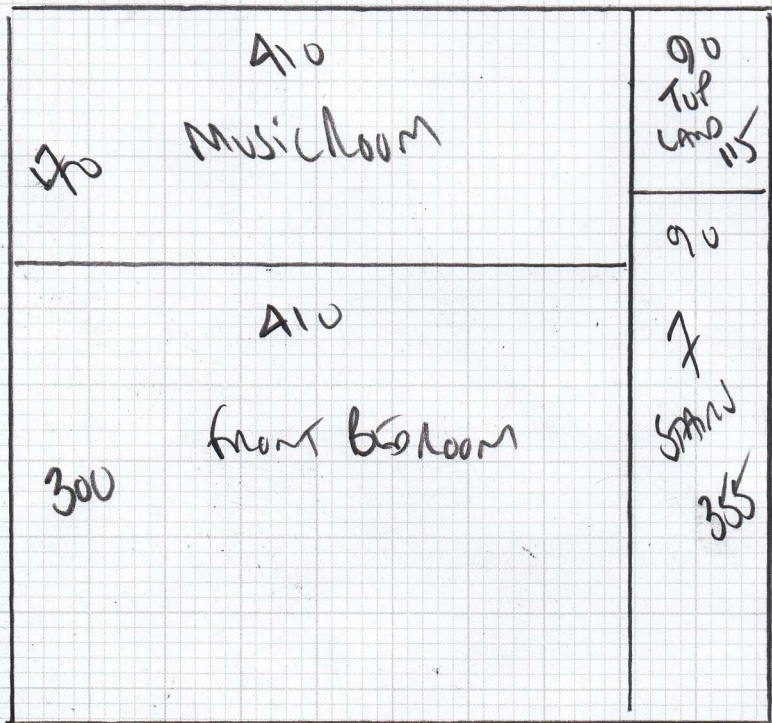 410
Music Room
170
90
TOP
LAND
115
410
Front Bedroom
300
90
7
STAIRS
355